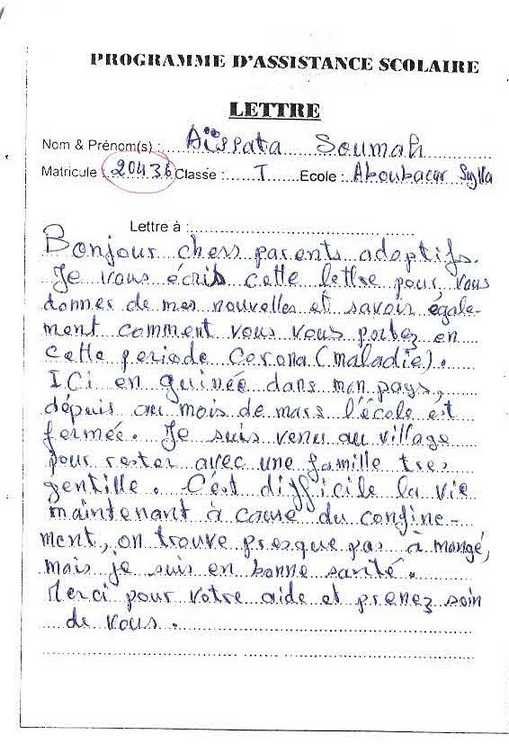 PROGRAMME D'ASSISTANCE SCOLAIRE
LETTRE
Nom & Prénom(s) : Aïssata Soumah
Matricule : 20436 Classe : T Ecole : Aboubacar Sylla
Lettre à :
Bonjour chers parents adoptifs.
Je vous écris cette lettre pour vous
donner de mes nouvelles et savoir égale-
ment comment vous vous portez en
cette periode Corona (maladie).
ICi en guinée dans mon pays,
dépuis au mois de mars l'école est
fermée. Je suis venu au village
pour rester avec une famille tres
gentille. C'est difficile la vie
maintenant à cause du confine-
ment, on trouve presque pas à mangé,
mais je suis en bonne santé.
Merci pour votre aide et prenez soin
de vous.